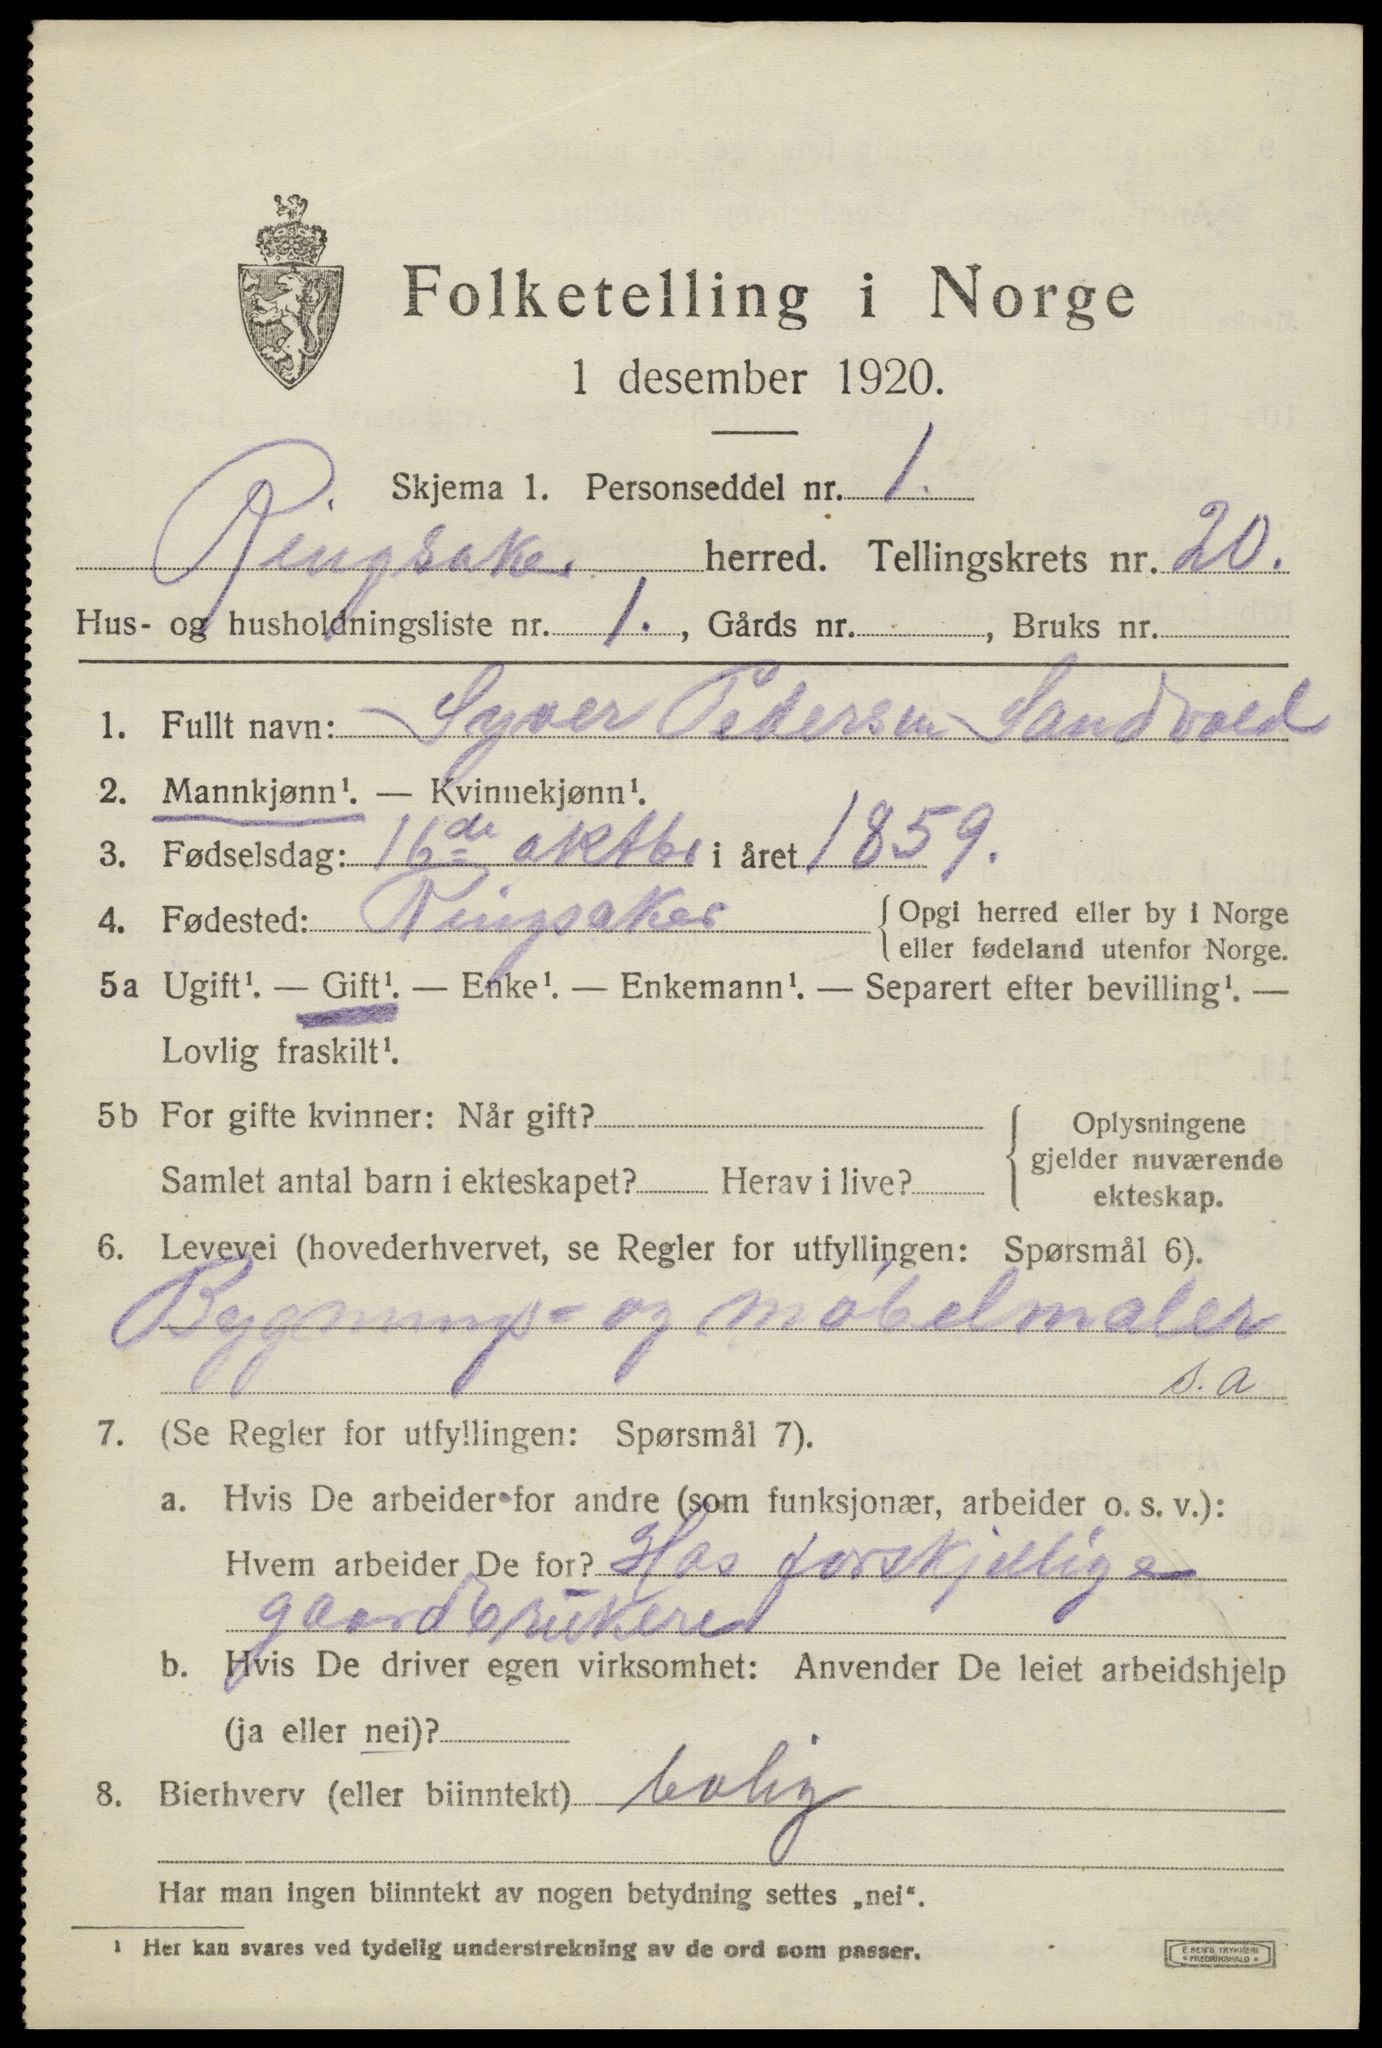 Folketelling i Norge
1 desember 1920.
Skjema 1. Personseddel nr. 1.
Ringsaker herred. Tellingskrets nr. 20.
Hus- og husholdningsliste nr. 1., Gårds nr. , Bruks nr.
1. Fullt navn: Syver Pedersen Sandvold
2. Mannkjønn¹. — Kvinnekjønn¹.
3. Fødselsdag: 16de oktbr i året 1859.
4. Fødested: Ringsaker { Opgi herred eller by i Norge
eller fødeland utenfor Norge.
5a Ugift¹. — Gift¹. — Enke¹. — Enkemann¹. — Separert efter bevilling¹. —
Lovlig fraskilt¹.
5b For gifte kvinner: Når gift? { Oplysningene
gjelder nuværende
Samlet antal barn i ekteskapet? Herav i live?
ekteskap.
6. Levevei (hovederhvervet, se Regler for utfyllingen: Spørsmål 6).
Bygnings- og møbelmaler
s.a
7. (Se Regler for utfyllingen: Spørsmål 7).
a. Hvis De arbeider for andre (som funksjonær, arbeider o. s. v.):
Hvem arbeider De for? Hos forskjellige
gaardbrukere
b. Hvis De driver egen virksomhet: Anvender De leiet arbeidshjelp
(ja eller nei)?
8. Bierhverv (eller biinntekt) bolig
Har man ingen biinntekt av nogen betydning settes „nei“.
¹ Her kan svares ved tydelig understrekning av de ord som passer.
E. SEM'S TRYKKERI
FREDRIKSHALD